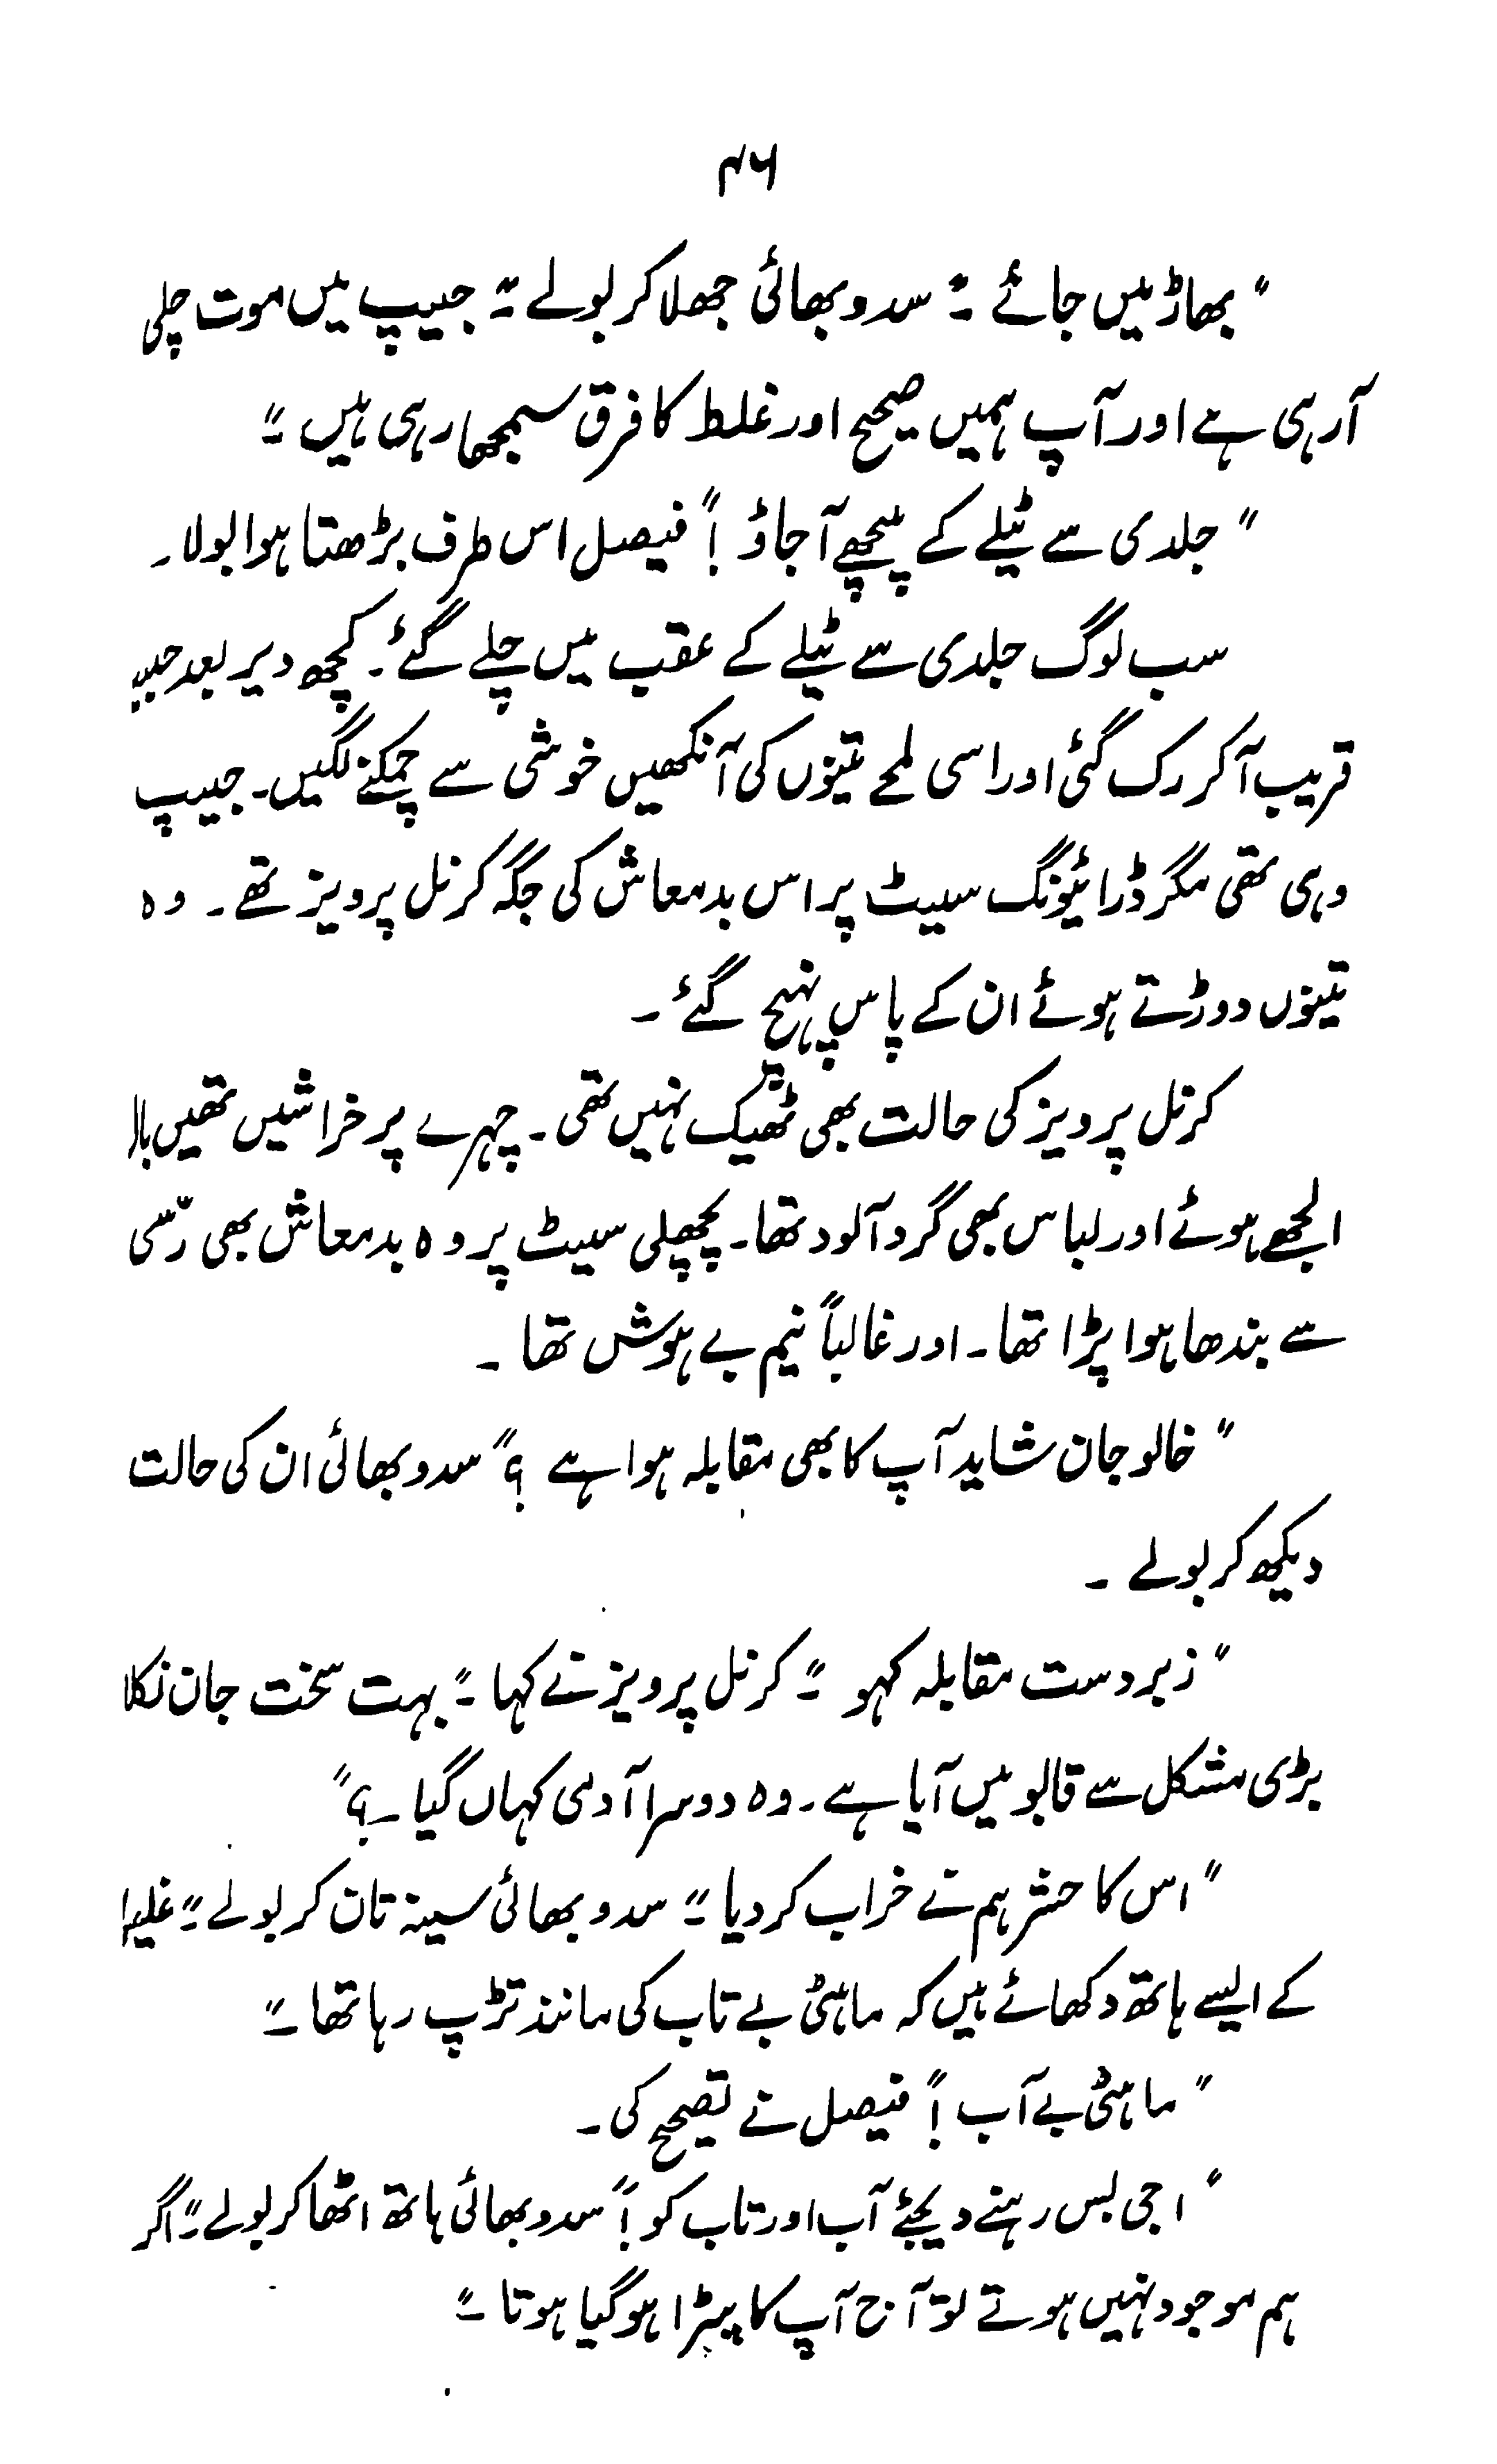 ۴۶
”بھاڑ میں جائے ۔“ سدو بھائی جھلا کر بولے ۔” جیپ میں موت چلی
آرہی ہے اور آپ ہمیں صحیح اور غلط کا فرق سمجھا رہی ہیں ۔“
”جلدی سے ٹیلے کے پیچھے آجاؤ !“ فیصل اس طرف بڑھتا ہوا بولا ۔
سب لوگ جلدی سے ٹیلے کے عقب میں چلے گئے ۔ کچھ دیر بعد جیپ
قریب آکر رک گئی اور اسی لمحے تینوں کی آنکھیں خوشی سے چمکنے لگیں ۔ جیپ
وہی تھی مگر ڈرائیونگ سیٹ پر اس بدمعاش کی جگہ کرنل پرویز تھے ۔ وہ
تینوں دوڑتے ہوئے ان کے پاس پہنچ گئے ۔
کرنل پرویز کی حالت بھی ٹھیک نہیں تھی ۔ چہرے پر خراشیں تھیں بال
الجھے ہوئے اور لباس بھی گرد آلود تھا ۔ پچھلی سیٹ پر وہ بدمعاش بھی رسّی
سے بندھا ہوا پڑا تھا ۔ اور غالباً نیم بے ہوش تھا ۔
”خالو جان شاید آپ کا بھی مقابلہ ہوا ہے ؟“ سدو بھائی ان کی حالت
دیکھ کر بولے ۔
”زبردست مقابلہ کہو ۔“ کرنل پرویز نے کہا ۔” بہت سخت جان نکلا
بڑی مشکل سے قابو میں آیا ہے ۔ وہ دوسرا آدمی کہاں گیا ۔؟“
”اس کا حشر ہم نے خراب کر دیا ۔“ سدو بھائی سینہ تان کر بولے ۔” غلیل
کے ایسے ہاتھ دکھائے ہیں کہ ماہئی بے تاب کی مانند تڑپ رہا تھا ۔“
”ماہئی بے آب !“ فیصل نے تصحیح کی ۔
”اجی بس رہنے دیجئے آب اور تاب کو !“ سدو بھائی ہاتھ اٹھا کر بولے ۔” اگر
ہم موجود نہیں ہوتے تو آج آپ کا بیڑا ہو گیا ہوتا ۔“